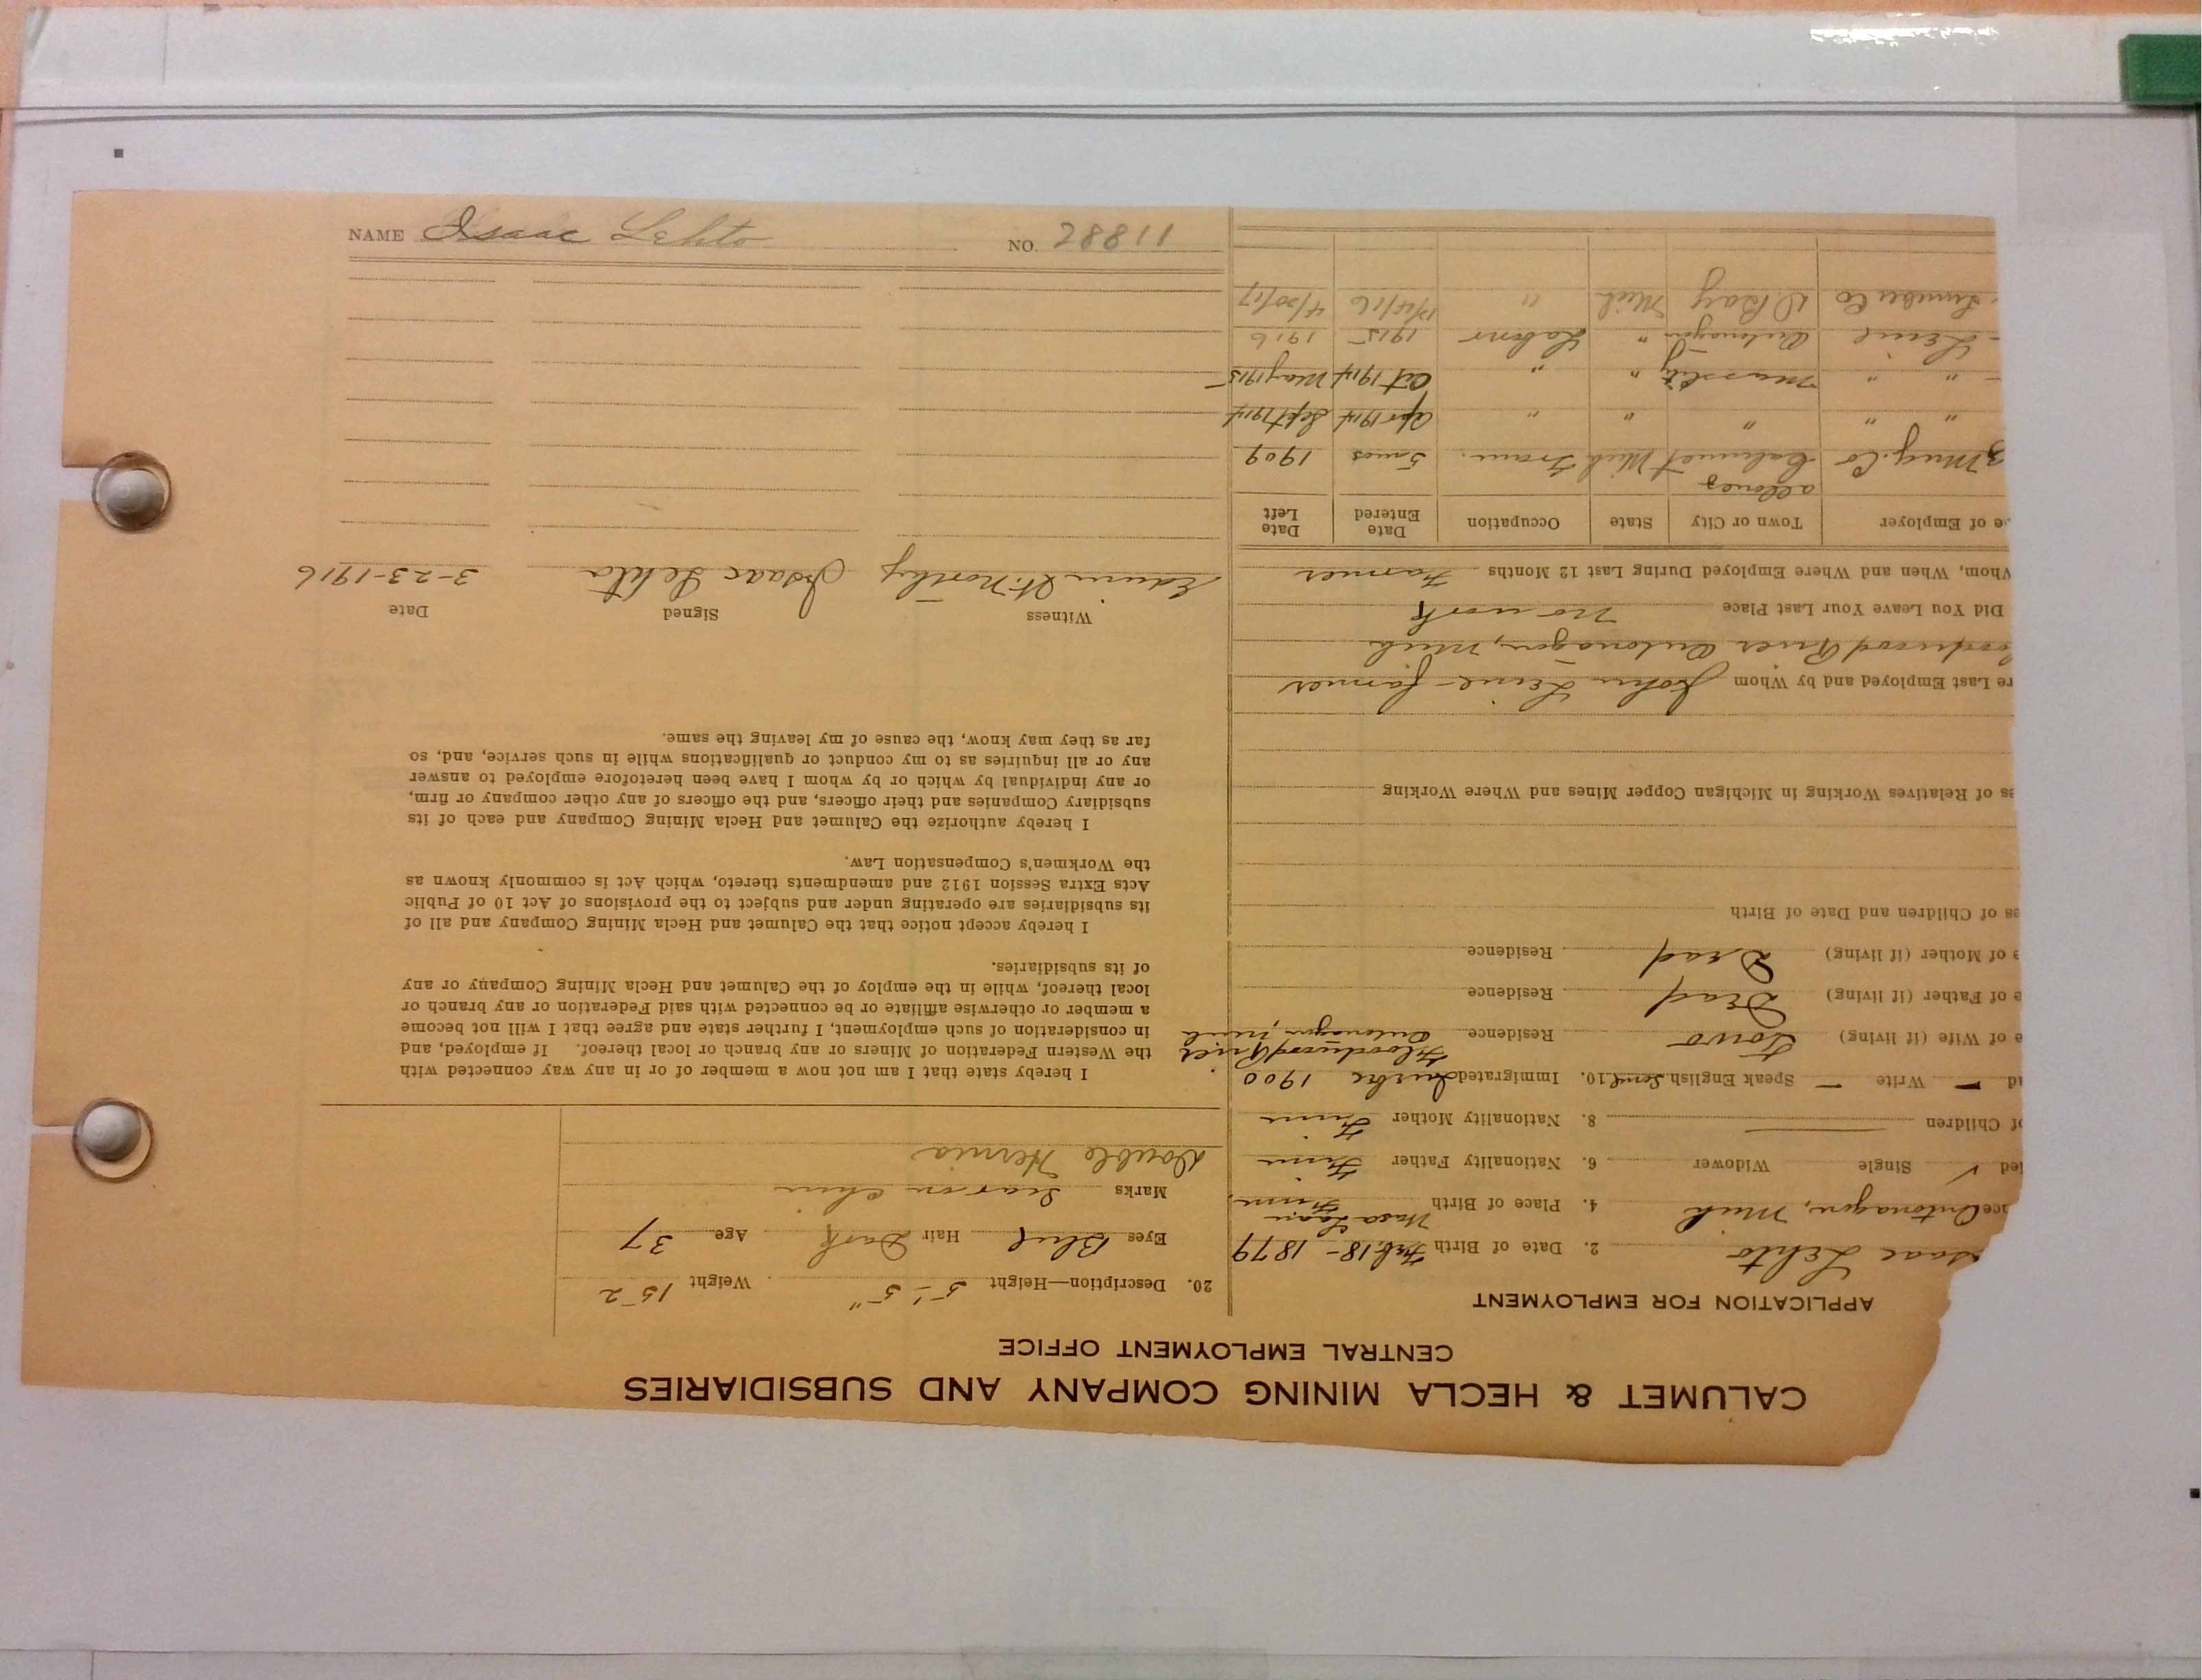 CALUMET & HECLA MINING COMPANY AND SUBSIDIARIES
CENTRAL EMPLOYMENT OFFICE
APPLICATION FOR EMPLOYMENT
saac Lehto 2. Date of Birth Feb. 18 - 1879
ce Ontonagon, Mich 4. Place of Birth Wasa Laani Finn.
ied ✓ Single Widower 6. Nationality Father Finn
of Children — 8. Nationality Mother Finn
ad — Write — Speak English Some 10. Immigrated 1900
e of Wife (if living) Residence Floodwood River Ontonagon, Mich
e of Father (if living) Dead Residence
e of Mother (if living) Dead Residence
es of Children and Date of Birth
es of Relatives Working in Michigan Copper Mines and Where Working
re Last Employed and by Whom John Leine - farmer
oodwood River Ontonagon, Mich
Did You Leave Your Last Place No work
Whom, When and Where Employed During Last 12 Months Farmer
e of Employer Town or City State Occupation Date Entered Date Left
Mng. Co Allouez Calumet Mich Tram. 5 mos 1909
" " " " " Apr 1914 Sept 1914
- " " Mass City " " Oct 1914 May 1915
- Leine Ontonagon " Labor 1915 1916
Lumber Co Mich " 4/30/17
20. Description—Height 5' - 5" Weight 152
Eyes Blue Hair Dark Age 37
Marks Scar on Chin
Double Hernia
I hereby state that I am not now a member of or in any way connected with
the Western Federation of Miners or any branch or local thereof. If employed, and
in consideration of such employment, I further state and agree that I will not become
a member or otherwise affiliate or be connected with said Federation or any branch or
local thereof, while in the employ of the Calumet and Hecla Mining Company or any
of its subsidiaries.
I hereby accept notice that the Calumet and Hecla Mining Company and all of
its subsidiaries are operating under and subject to the provisions of Act 10 of Public
Acts Extra Session 1912 and amendments thereto, which Act is commonly known as
the Workmen's Compensation Law.
I hereby authorize the Calumet and Hecla Mining Company and each of its
subsidiary Companies and their officers, and the officers of any other company or firm,
or any individual by which or by whom I have been heretofore employed to answer
any or all inquiries as to my conduct or qualifications while in such service, and, so
far as they may know, the cause of my leaving the same.
Witness Signed Date
Edwin Isaac Lehto 3-23-1916
NAME Isaac Lehto NO. 28811